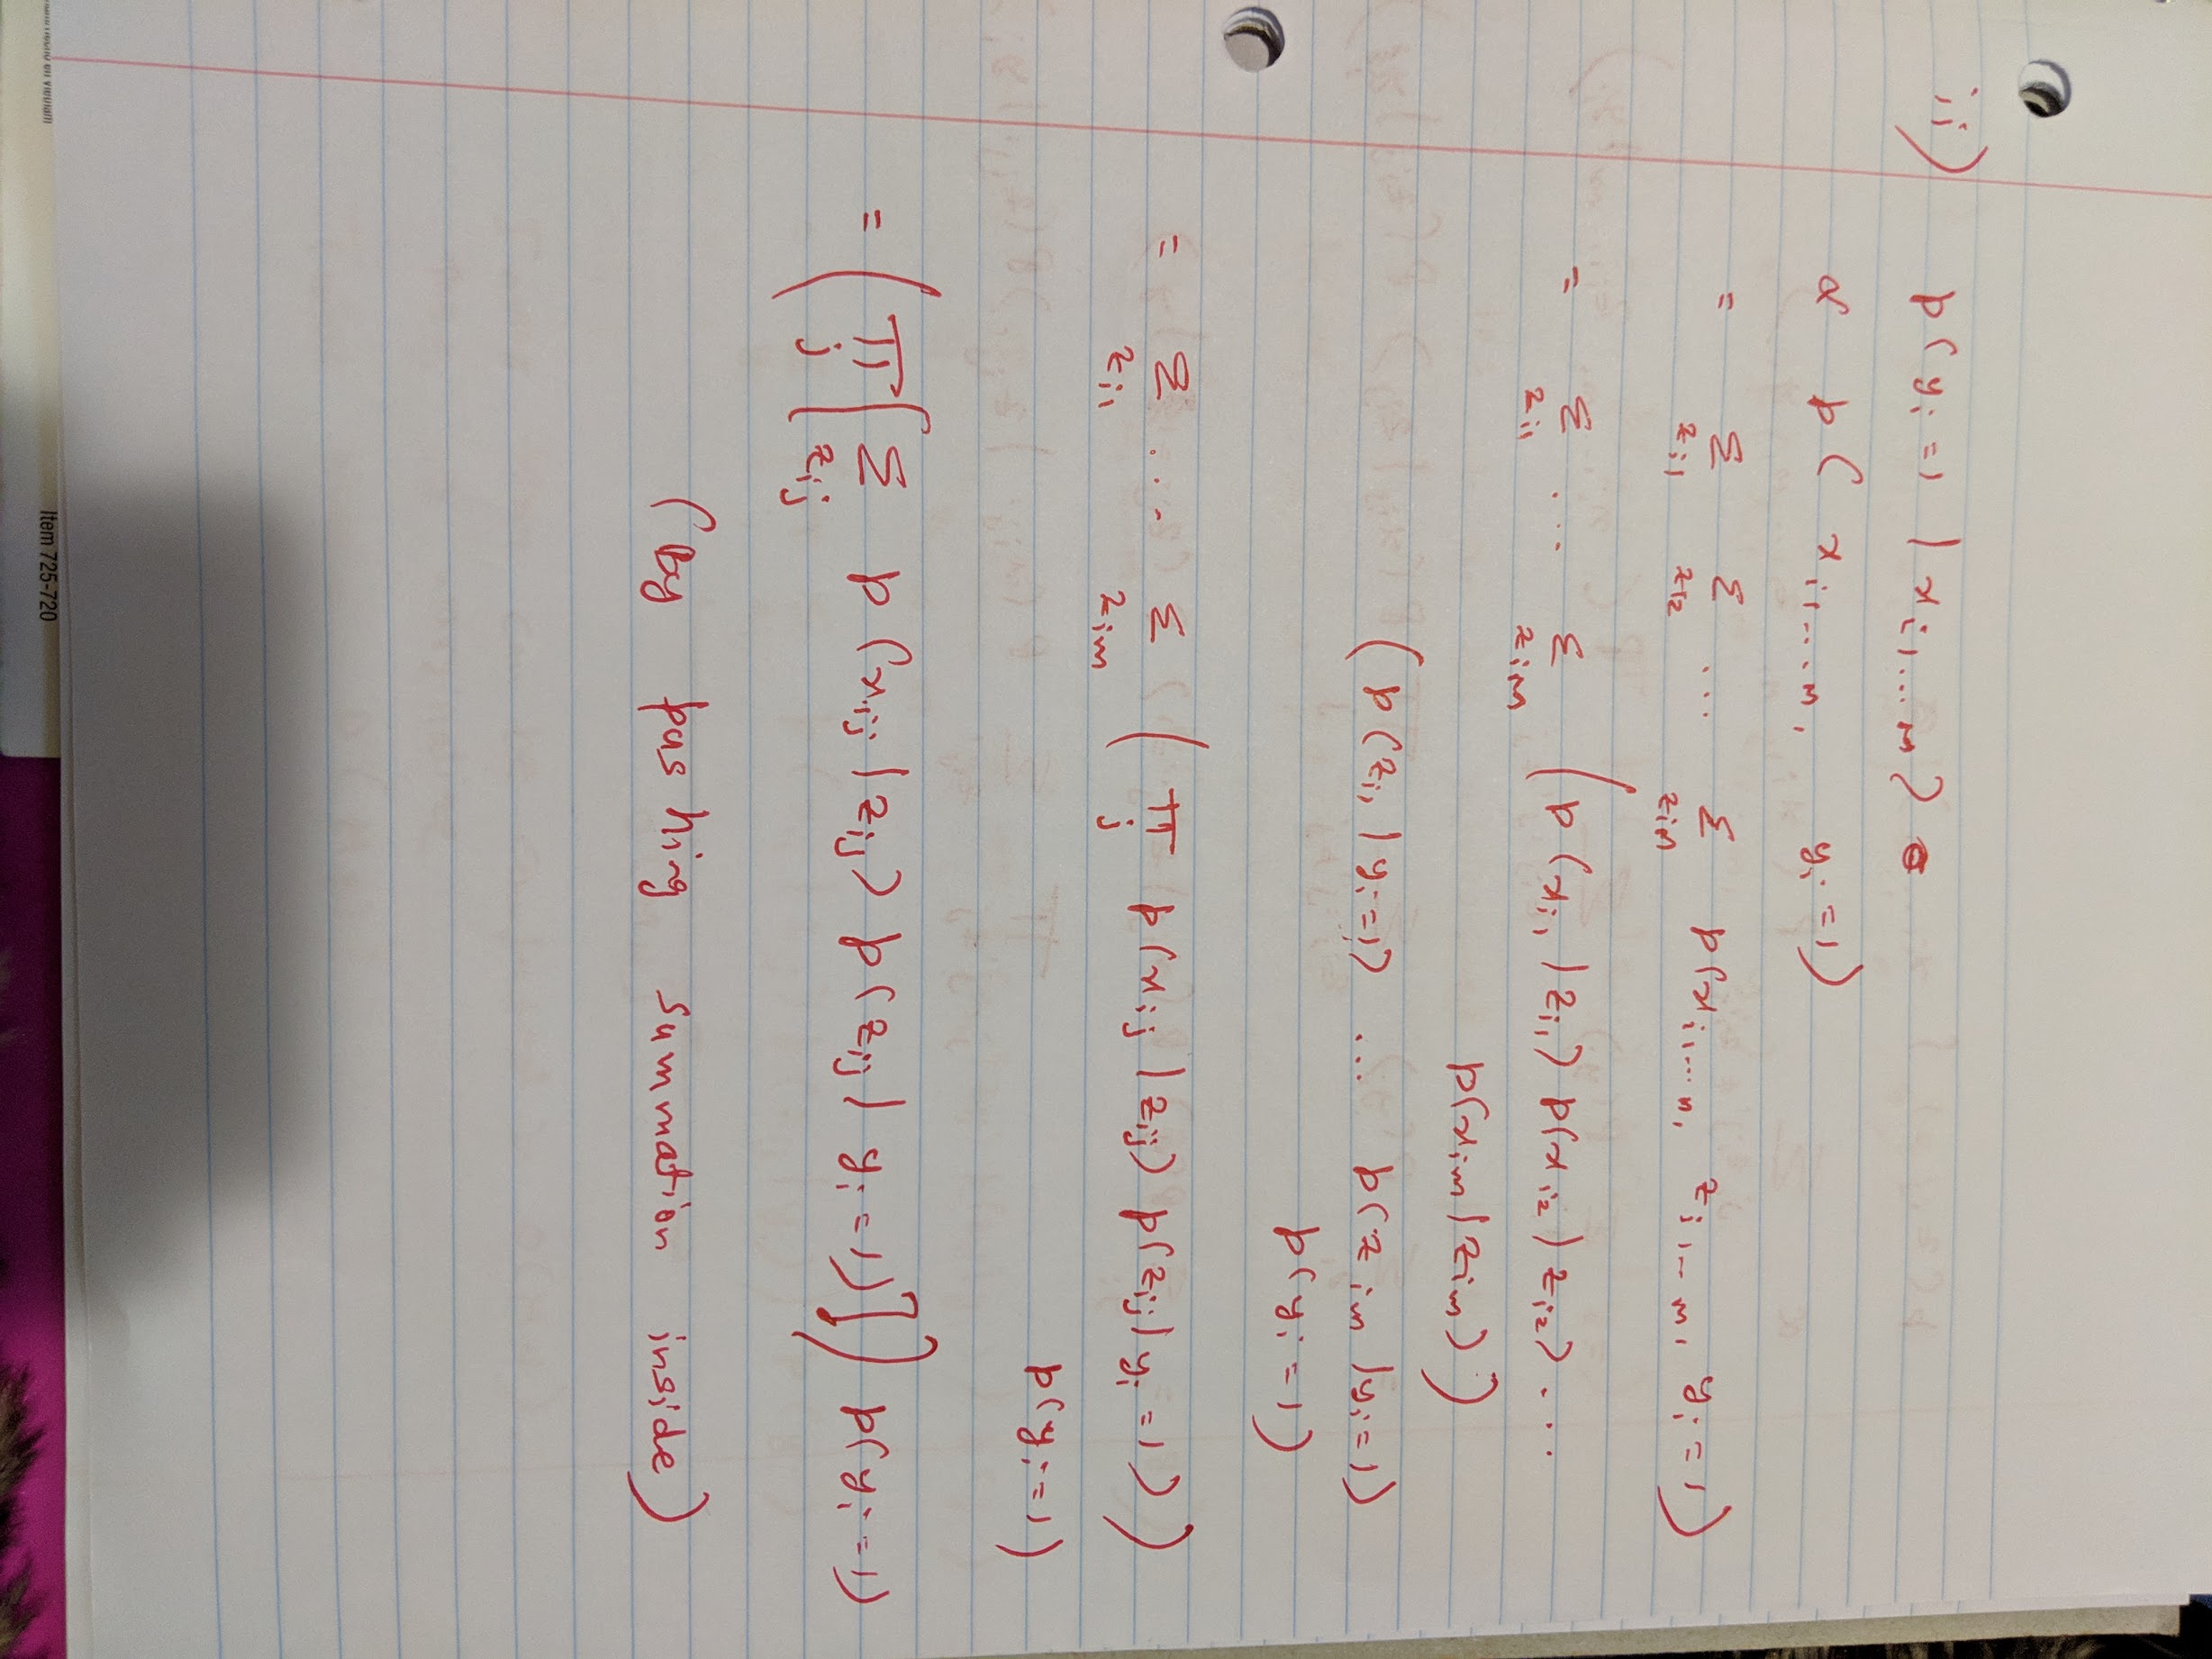 ii)
p(yi=1 | xi1...m)
α p( xi1...m, yi=1)
= Σzi1 Σzi2 ... Σzim p(xi1...m, zi1...m, yi=1)
= Σzi1 ... Σzim (p(xi1|zi1) p(xi2|zi2) ...
p(xim|zim))
(p(zi1|yi=1) ... p(zim|yi=1)
p(yi=1)
= Σzi1 ... Σzim (πj p(xij|zij) p(zij|yi=1))
p(yi=1)
= (πj [Σzij p(xij|zij) p(zij|yi=1)]) p(yi=1)
(By pushing summation inside)
Item 725-720